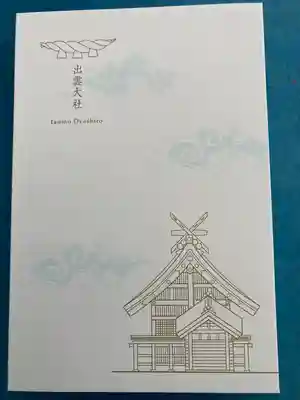 出雲大社
Izumo Oyashiro